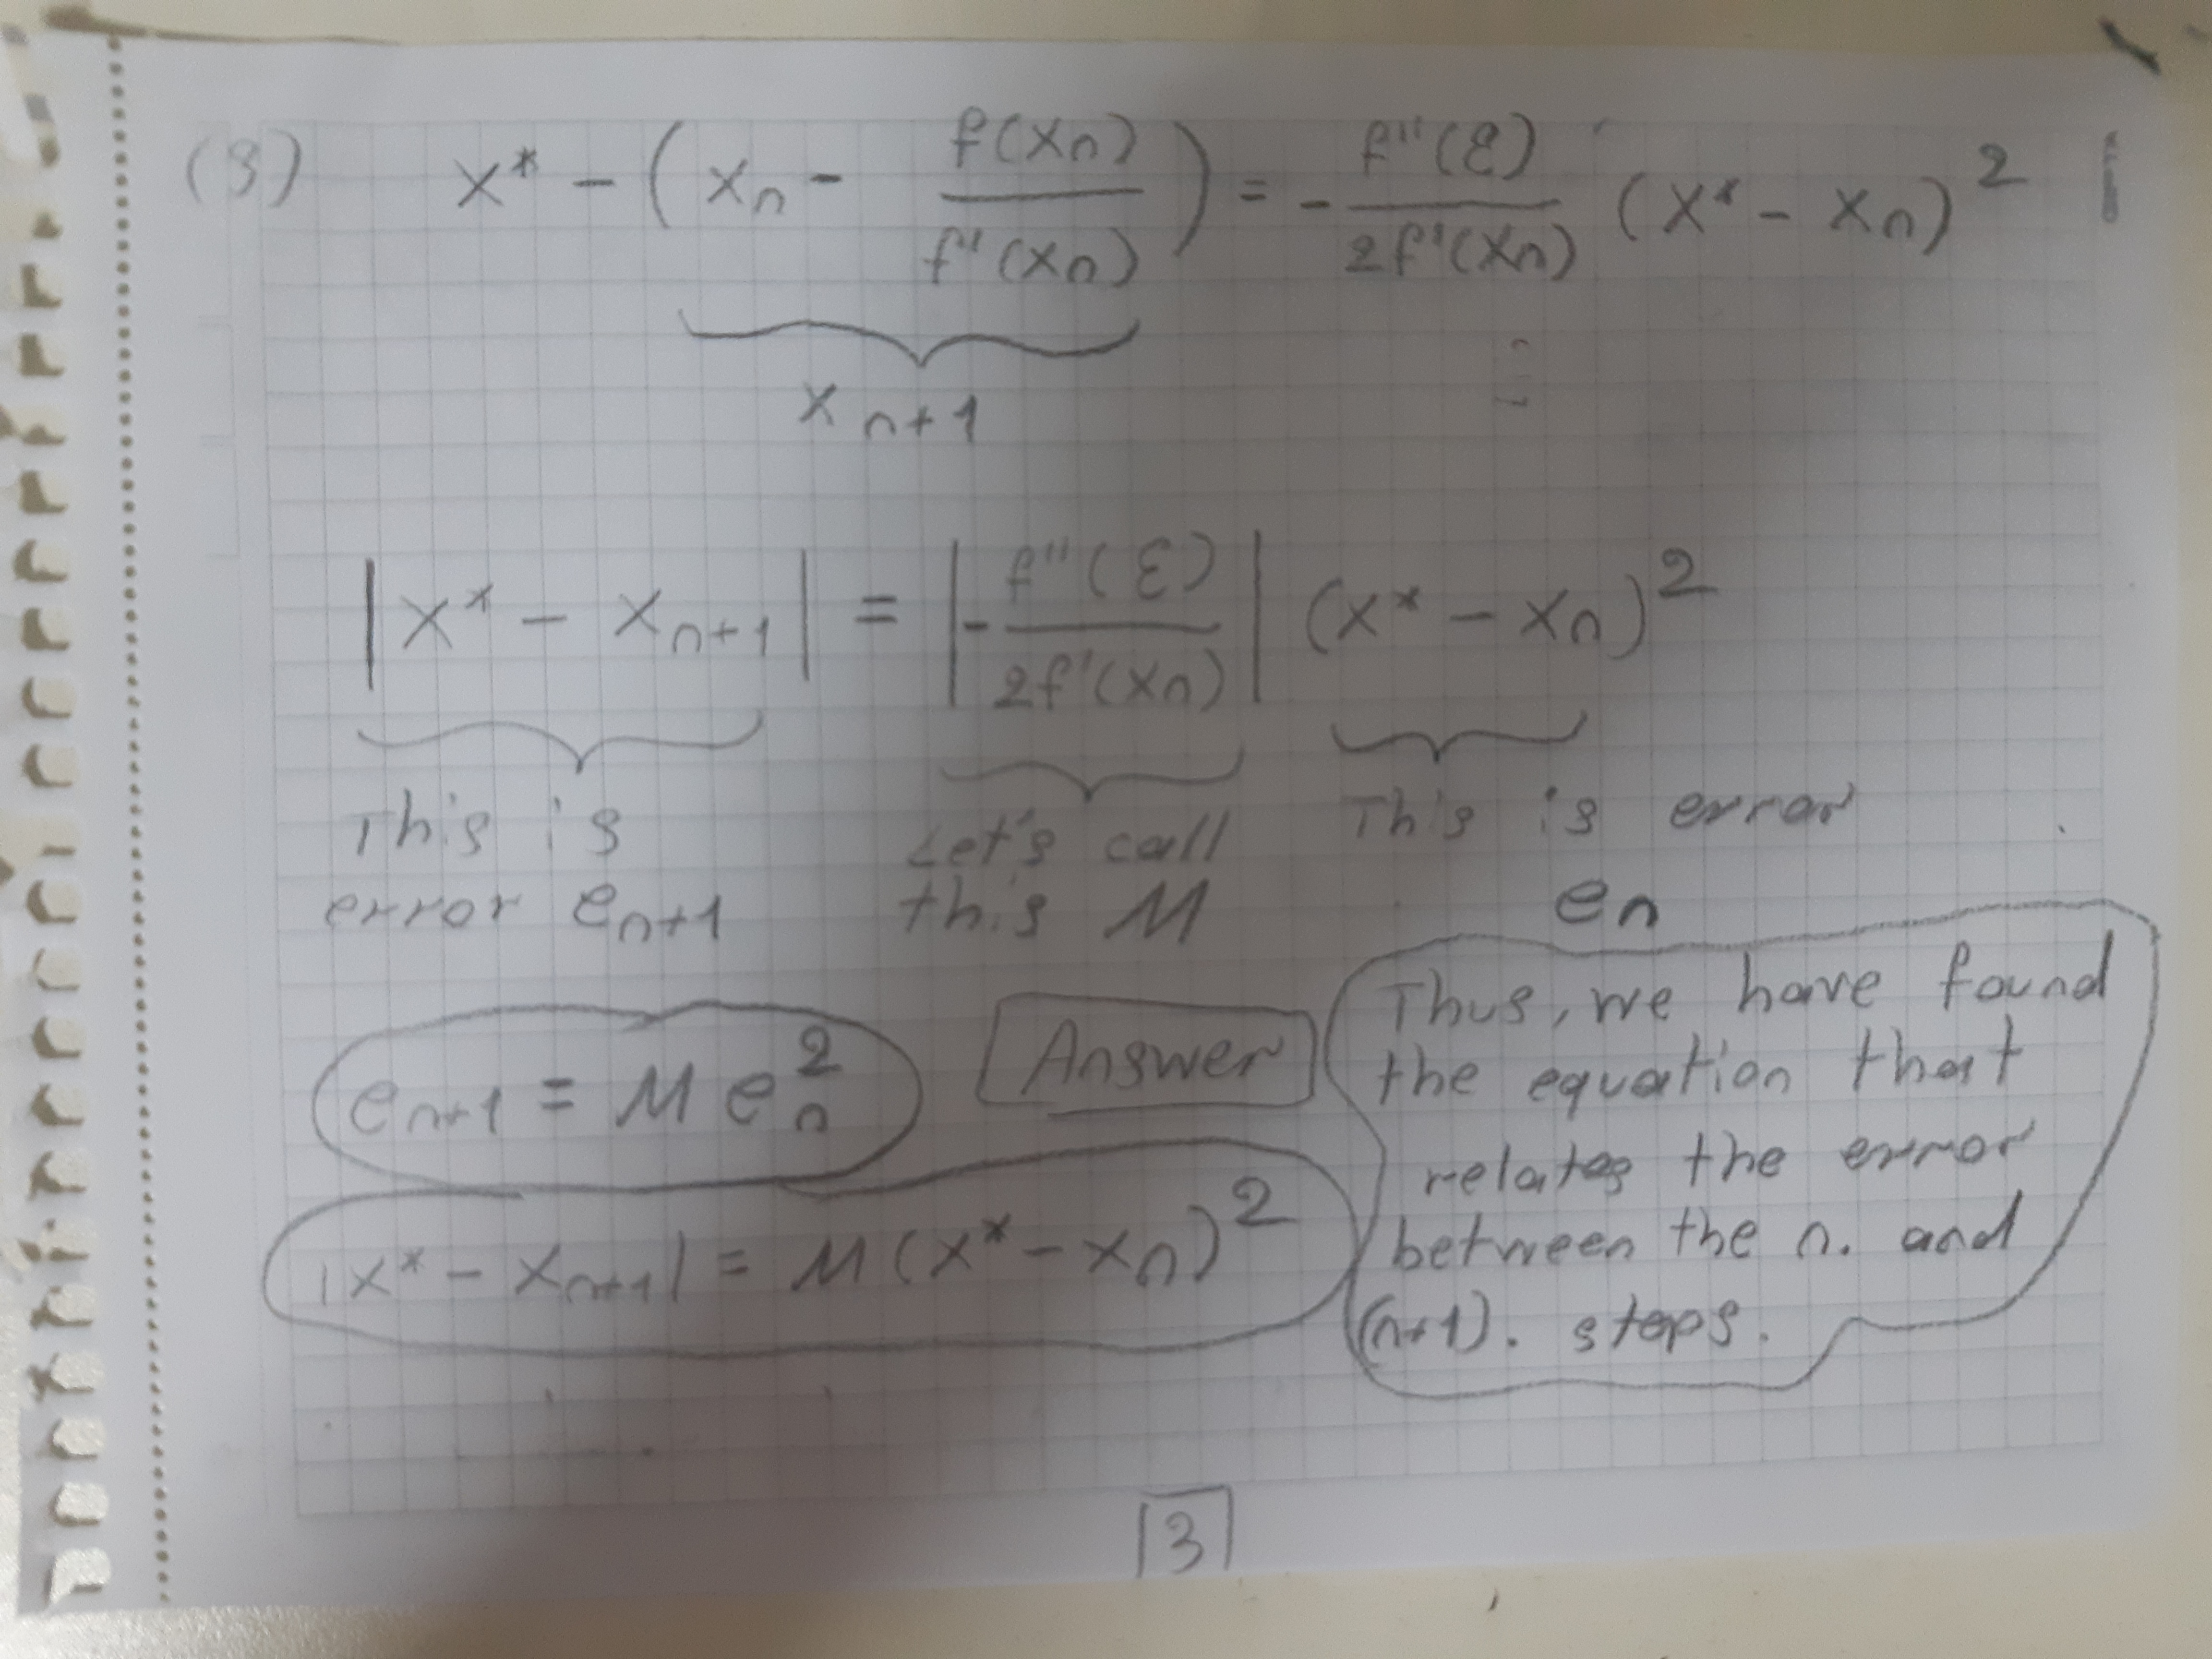 (3) x* - (xn - f(xn) / f'(xn)) = - f''(ε) / 2f'(xn) (x* - xn)²
xn+1
|x* - xn+1| = |- f''(ε) / 2f'(xn)| (x* - xn)²
This is
error en+1
Let's call
this M
This is error
en
en+1 = M en²
Answer
|x* - xn+1| = M(x* - xn)²
Thus, we have found
the equation that
relates the error
between the n. and
(n+1). steps.
3